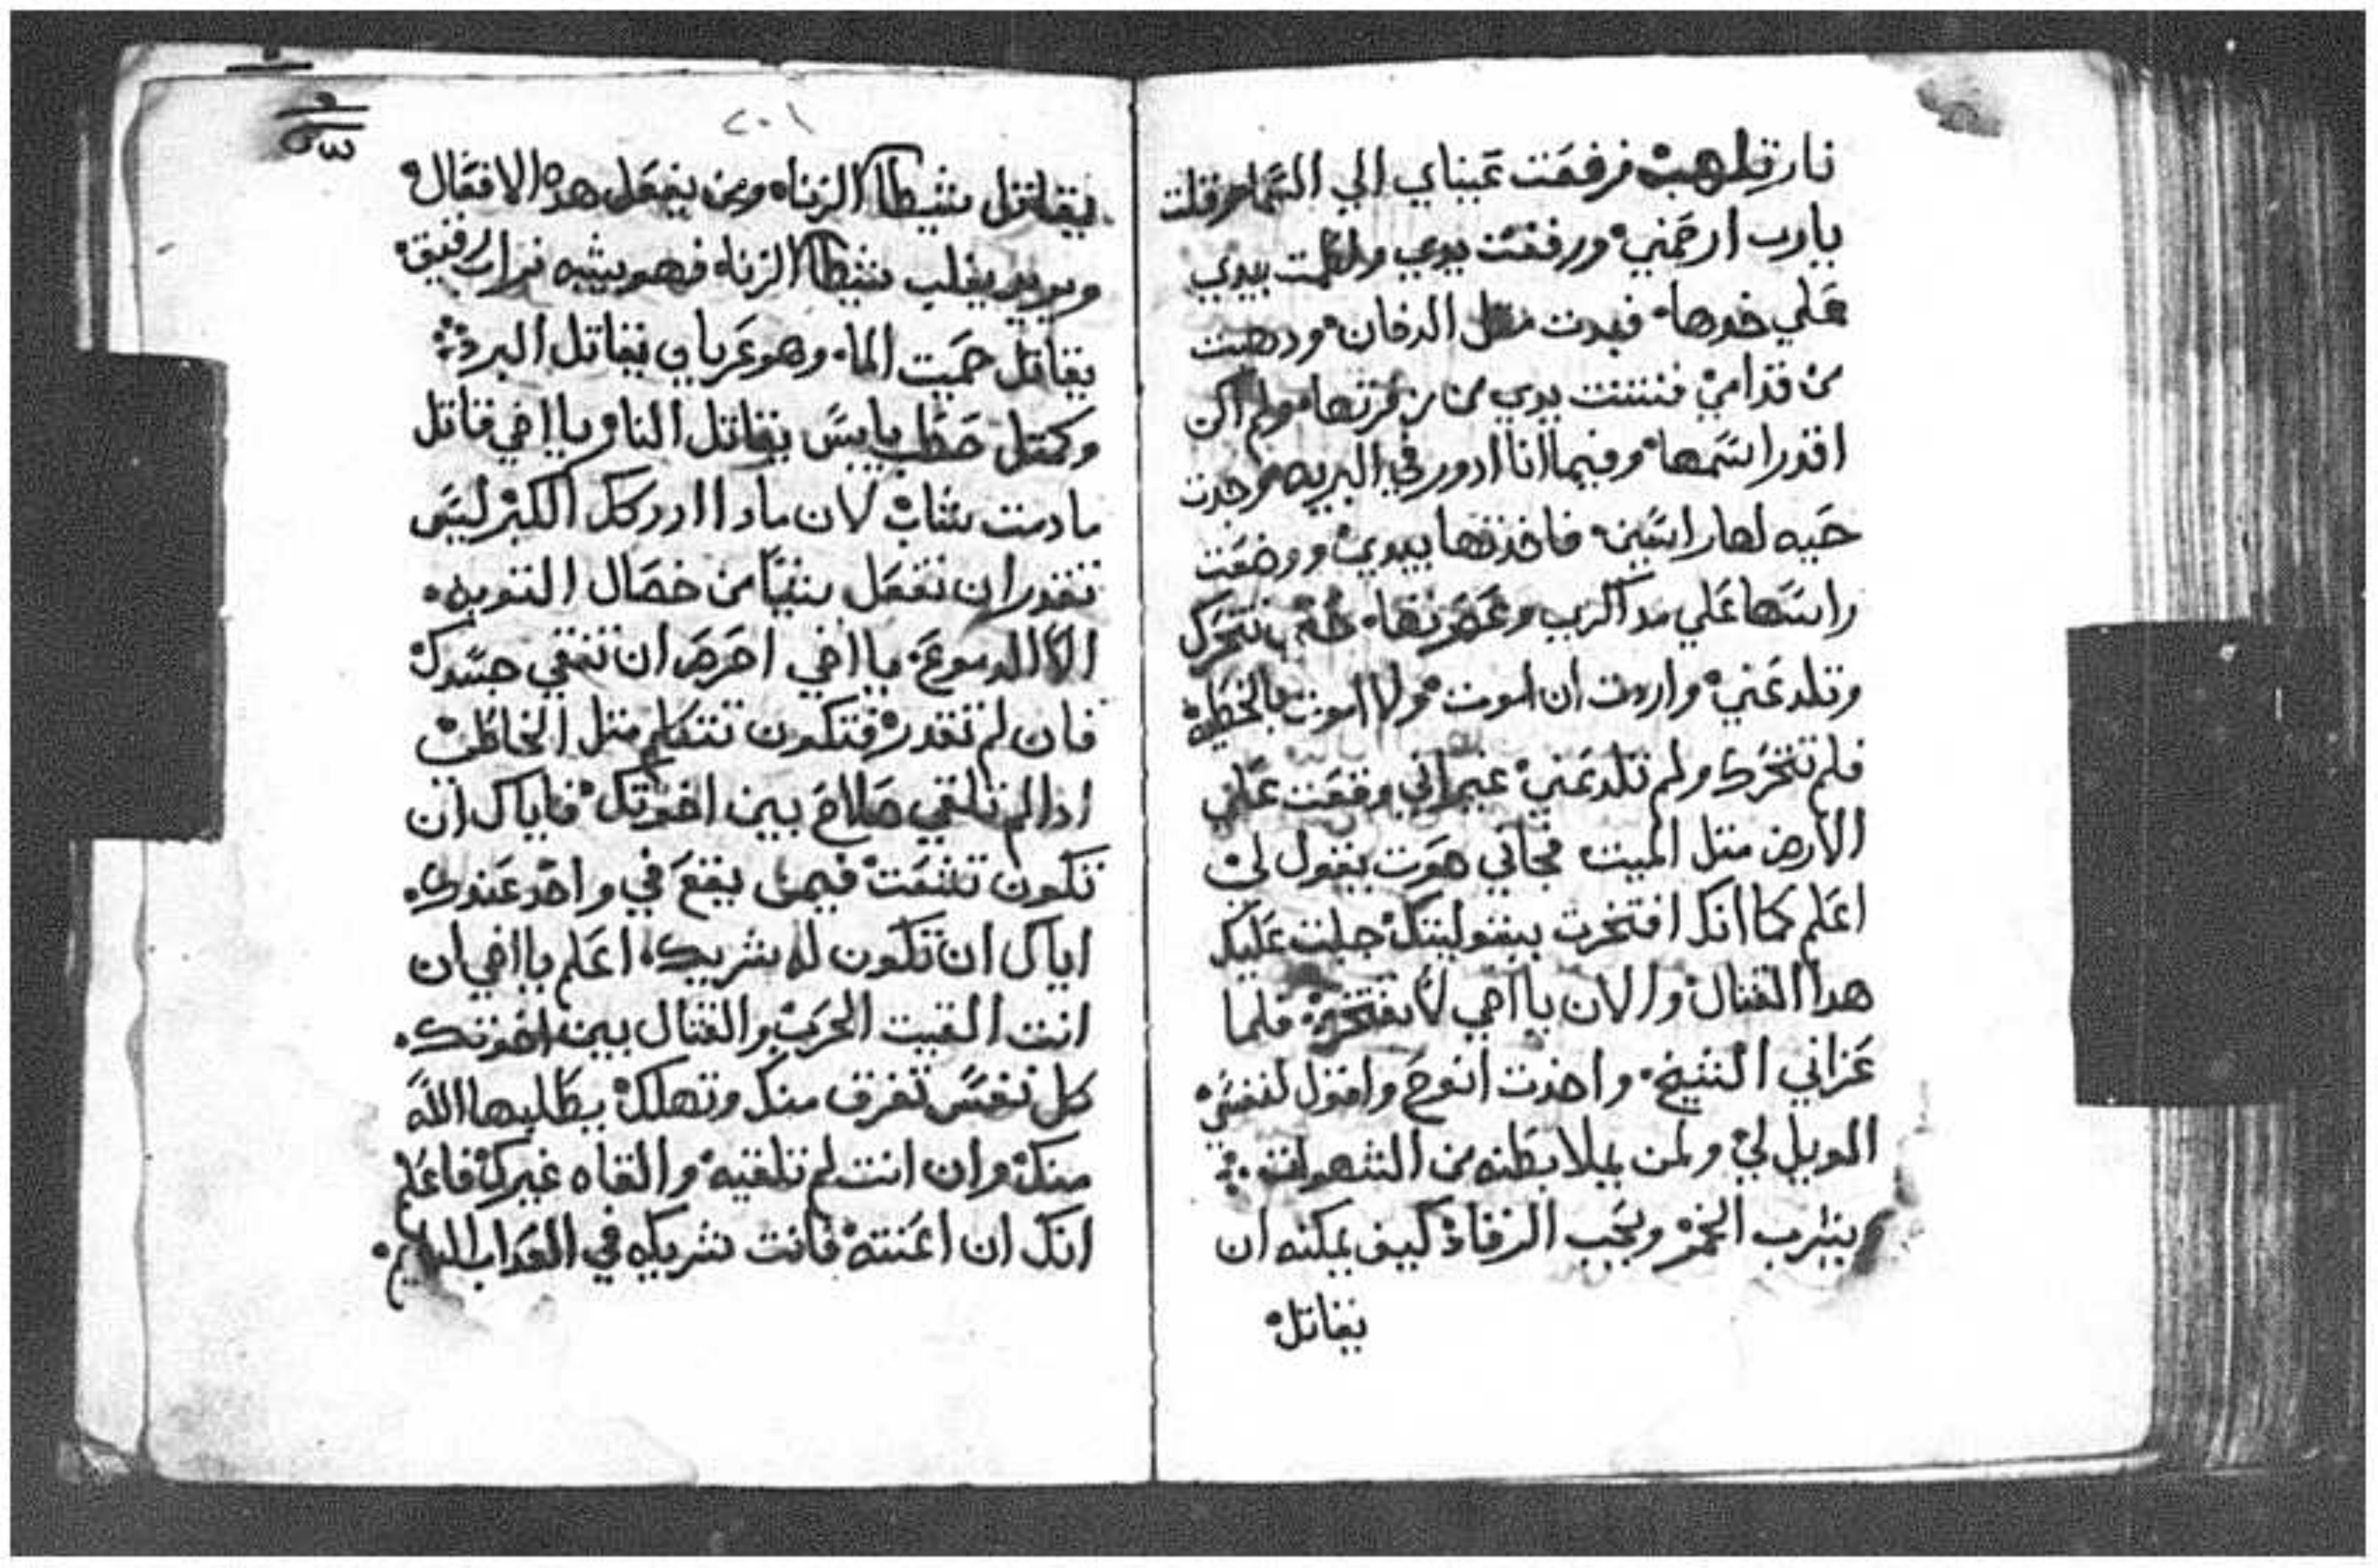 نار تلهب فرفعت عيناي الي السما وقلت
يارب ارحمني ورفعت يدي ولطمت بيدي
علي خدها فبدت مثل الدخان ودهبت
من قدامي فنتنت يدي من زفرتها ولم اكن
اقدر اشمها وفيما انا ادور في البريه وجدت
حيه لها راسين فاخذتها بيدي ووضعت
راسها علي مداكري وعصرتها حتي تتحرك
وتلدغني واردت ان اموت ولا اموت بالخطيه
فلم تتحرك ولم تلدغني غير اني وقعت علي
الارض متل الميت فجاني صوت يقول لي
اعلم كما انك افتخرت ببتوليتك جلبت عليك
هدا القتال والان يا اخي لا تفتخر فلما
عزاني الشيخ واخدت انوح واقول لنفسي
الويل لي ولمن يملا بطنه من الشهوات
يشرب الخمر ويحب الرقاد كيف يمكنه ان
يقاتل
٢٠١
يقاتل شيطان الزناه ومن يفعل هده الافعال
ويريد يغلب شيطان الزناه فهو يشبه تراب رقيق
يقاتل حميت الما وهو عريان يقاتل البرد
وكمتل حطب يابس يقاتل النار يا اخي قاتل
مادمت شاب لان مادا ادركك الكبر ليس
تقدر ان تفعل شيا من خصال التوبه
الا الدموع يا اخي احرص ان تنقي جسدك
فان لم تقدر فتكون تتكلم متل الخاطي
ادا لم تلقي صلاح بين اخوتك فاياك ان
تكون تشمت فيمن يقع في واحد عندك
اياك ان تكون له شريك اعلم يا اخي ان
انت القيت الحرب والقتال بين اخوتك
كل نفس تغرق منك وتهلك يطلبها الله
منك وان انت لم تلقيه والقاه غيرك فاعلم
انك ان اعنته فانت شريكه في العداب